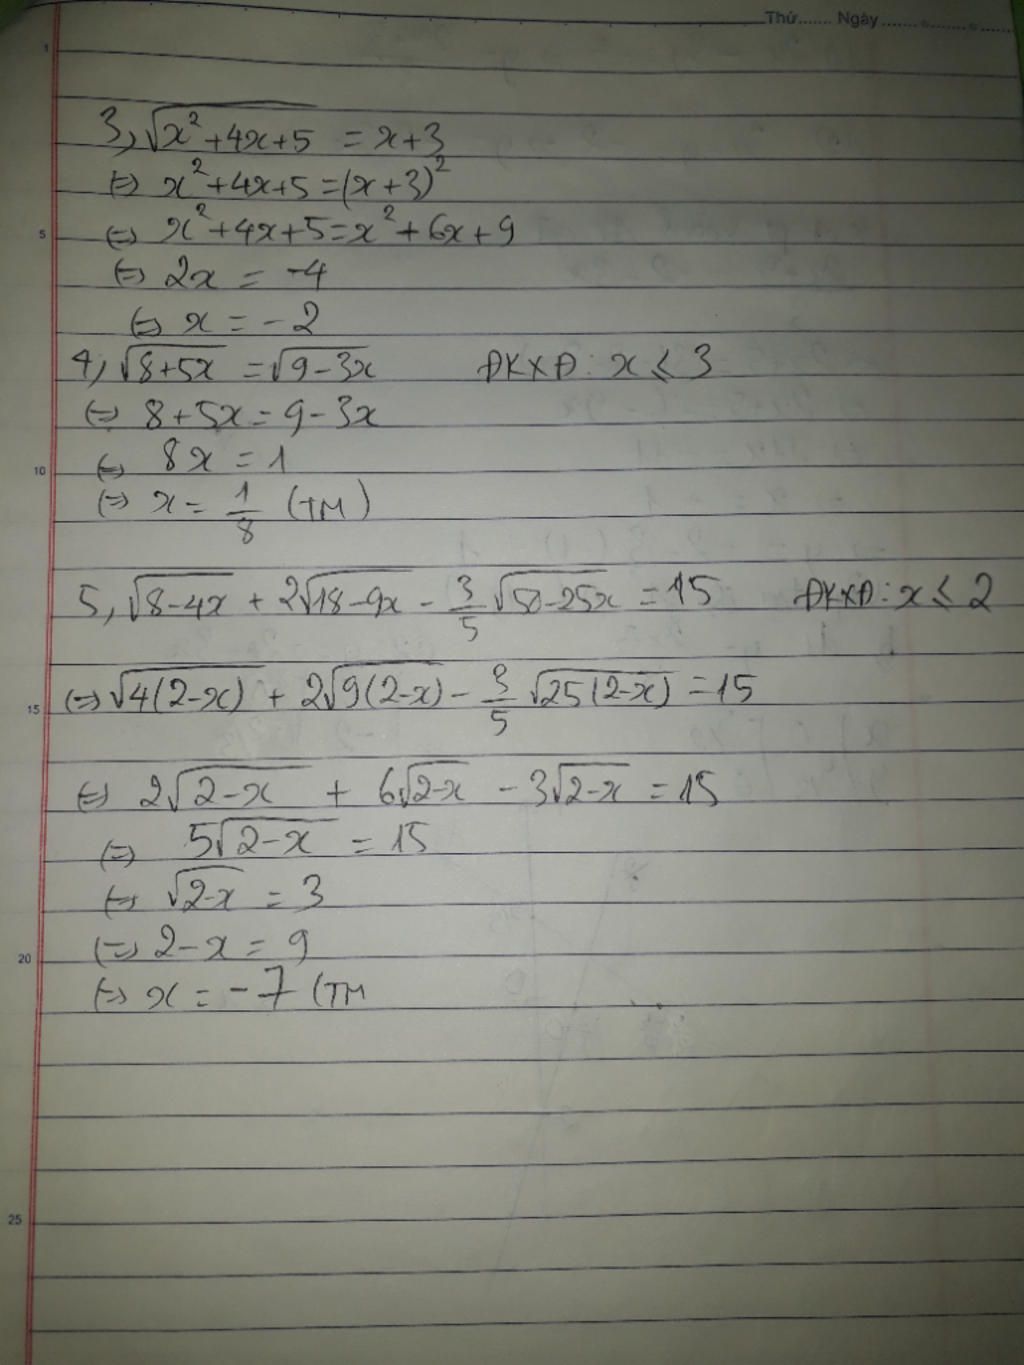 Thứ....... Ngày ...................
1
3, √(x² + 4x + 5) = x + 3
(=) x² + 4x + 5 = (x + 3)²
5
(=) x² + 4x + 5 = x² + 6x + 9
(=) 2x = -4
(=) x = -2
4, √(8 + 5x) = √(9 - 3x) ĐKXĐ: x ≤ 3
(=) 8 + 5x = 9 - 3x
10
(=) 8x = 1
(=) x = 1/8 (TM)
5, √(8 - 4x) + 2√(18 - 9x) - 3/5 √(50 - 25x) = 15 ĐKXĐ: x ≤ 2
15
(=) √(4(2 - x)) + 2√(9(2 - x)) - 3/5 √(25(2 - x)) = 15
(=) 2√(2 - x) + 6√(2 - x) - 3√(2 - x) = 15
(=) 5√(2 - x) = 15
(=) √(2 - x) = 3
20
(=) 2 - x = 9
(=) x = -7 (TM
25